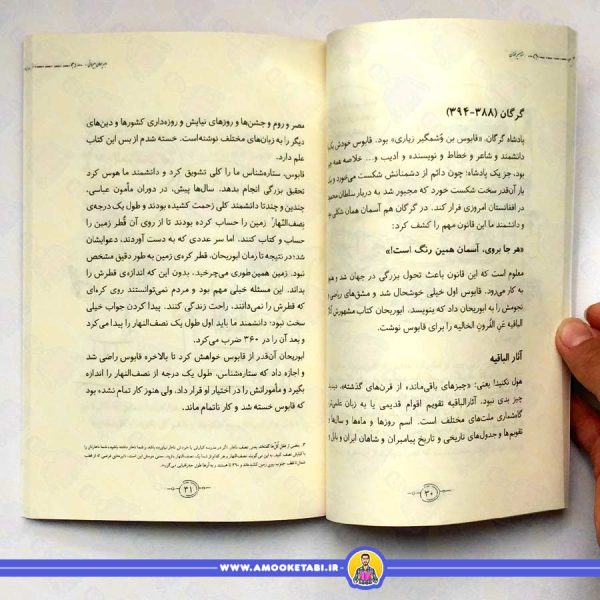 گرگان (۳۸۸-۳۹۴)
پادشاه گرگان، «قابوس بن وُشمگیر زیاری» بود. قابوس خودش یک
دانشمند و شاعر و خطاط و نویسنده و ادیب و... خلاصه همه
بود، جز یک پادشاه؛ چون دائم از دشمنانش شکست می‌خورد و یک
بار آن‌قدر سخت شکست خورد که مجبور شد به دربار سلطان
در افغانستان امروزی فرار کند. در گرگان هم آسمان همان شکلی
و دانشمند ما این قانون مهم را کشف کرد:
«هر جا بروی، آسمان همین رنگ است!»
معلوم است که این قانون باعث تحول بزرگی در جهان شد و
به کار می‌رود. قابوس اول خیلی خوشحال شد و مشق‌های ریاضی
نجومش را به ابوریحان داد که بنویسد. ابوریحان کتاب مشهورش
الباقیه عَنِ القُرونِ الخالیه را برای قابوس نوشت.
آثار الباقیه
هول نکنید! یعنی: «چیزهای باقی‌مانده از قرن‌های گذشته».
چیز بدی نبود. آثارالباقیه تقویم اقوام قدیمی یا به زبان
گاه‌شماری ملت‌های مختلف است. اسم روزها و ماه‌ها و سال‌ها
تقویم‌ها و جدول‌های تاریخی و تاریخ پیامبران و شاهان ایران و بابل
۳۰
مصر و روم و جشن‌ها و روزهای نیایش و روزه‌داری کشورها و دین‌های
دیگر را به زبان‌های مختلف نوشته‌است. خسته شدم از بس این کتاب
علم دارد.
قابوس، ستاره‌شناس ما را کلی تشویق کرد و دانشمند ما هوس کرد
تحقیق بزرگی انجام بدهد. سال‌ها پیش، در دوران مأمون عباسی،
چندین و چندتا دانشمند کلی زحمت کشیده بودند و طول یک درجه‌ی
نصف‌النّهار زمین را حساب کرده بودند تا از روی آن قُطر زمین را
حساب و کتاب کنند. اما سر عددی که به دست آوردند، دعوایشان
شد؛ در نتیجه تا زمان ابوریحان، قطر کره‌ی زمین به طور دقیق مشخص
نبود. زمین همین‌طوری می‌چرخید، بدون این که اندازه‌ی قطرش را
بداند. این مسئله خیلی مهم بود و مردم نمی‌توانستند روی کره‌ای
که قطرش را نمی‌دانند، راحت زندگی کنند. پیدا کردن جواب خیلی
سخت نبود؛ دانشمند ما باید اول طول یک نصف‌النهار را پیدا می‌کرد
و بعد آن را در ۳۶۰ ضرب می‌کرد.
ابوریحان آن‌قدر از قابوس خواهش کرد تا بالاخره قابوس راضی شد
و اجازه داد که ستاره‌شناس، طول یک درجه از نصف‌النهار را اندازه
بگیرد و مأمورانش را در اختیار او قرار داد. ولی هنوز کار تمام نشده بود
که قابوس خسته شد و کار ناتمام ماند.
۳۱
WWW.AMOOKETABI.IR